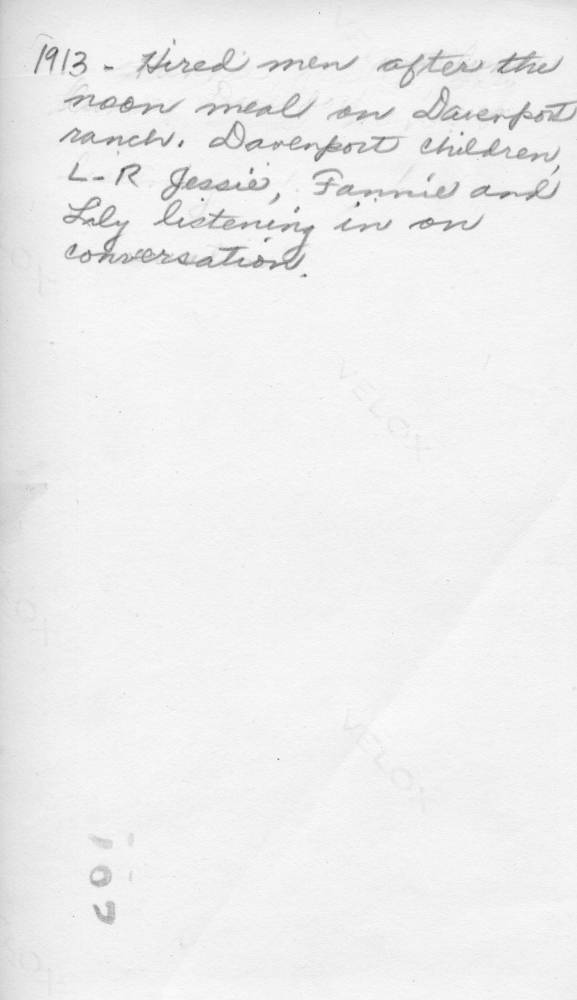 1913 - Hired men after the
noon meal on Davenport
ranch. Davenport children,
L-R Jessie, Fannie and
Lily listening in on
conversation.
VELOX
VELOX